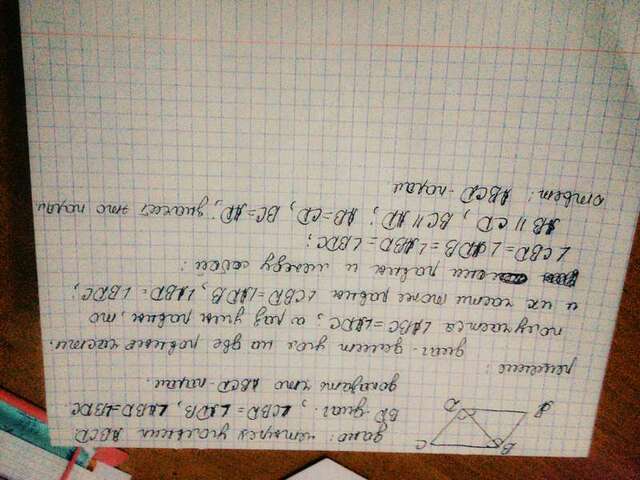 B C
A D
дано: четырехугольник ABCD
BD диаг. ∠CBD = ∠ADB, ∠ABD = ∠BDC
доказать что ABCD - парал
решение:
диаг. делит углы на две равные части.
получается ∠ABC = ∠ADC; а раз углы равны, то
и их части тоже равны ∠CBD = ∠ADB, ∠ABD = ∠BDC;
равны и между собой:
∠CBD = ∠ADB = ∠ABD = ∠BDC;
AB || CD, BC || AD; AB = CD, BC = AD; значит это парал
ответ: ABCD - парал